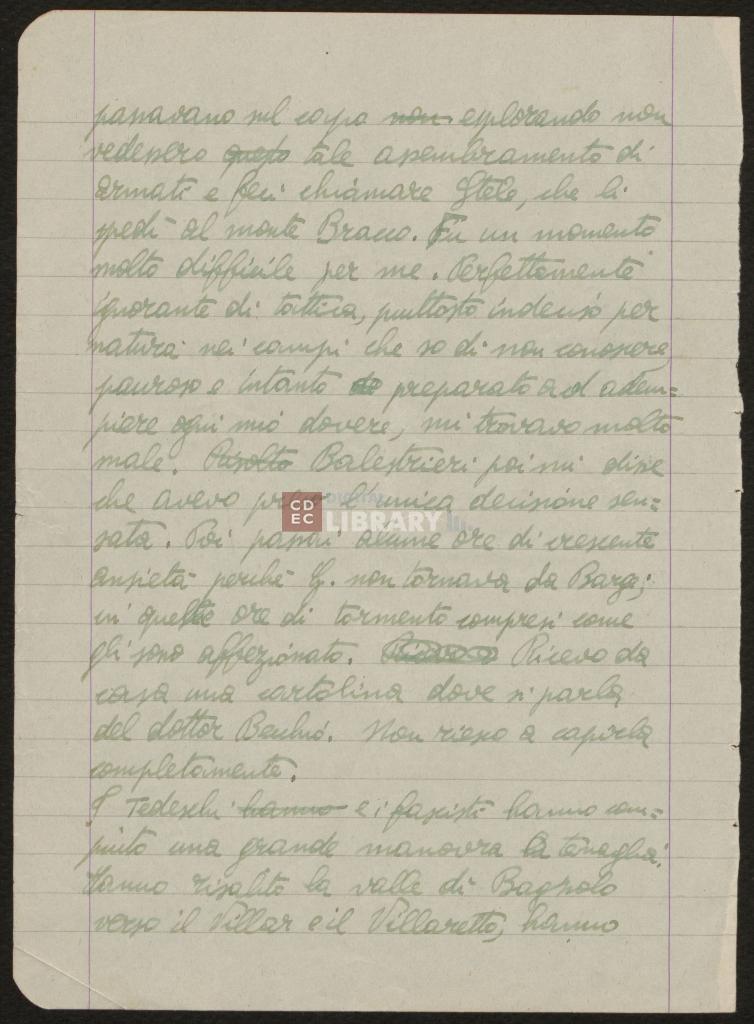 passavano sul capo non esplorando non
vedessero questo tale assembramento di
armati e feci chiamare Stelo, che li
spedì al monte Bracco. Fu un momento
molto difficile per me. Perfettamente
ignorante di tattica, piuttosto indeciso per
natura nei campi che so di non conoscere,
pauroso e intanto preparato ad adem=
piere ogni mio dovere, mi trovavo molto
male. Risolto Balestrieri poi mi disse
che avevo preso l'unica decisione sen=
sata. Poi passai alcune ore di crescente
ansietà perché G. non tornava da Barge;
in quelle ore di tormento compresi come
gli sono affezionato. Ricevo da
casa una cartolina dove si parla
del dottor Non riesco a capirla
completamente.
I Tedeschi hanno e i fascisti hanno com=
piuto una grande manovra a tenaglia.
Hanno risalito la valle di Bagnolo
verso il Villar e il Villaretto, hanno
CDEC DIGITAL LIBRARY